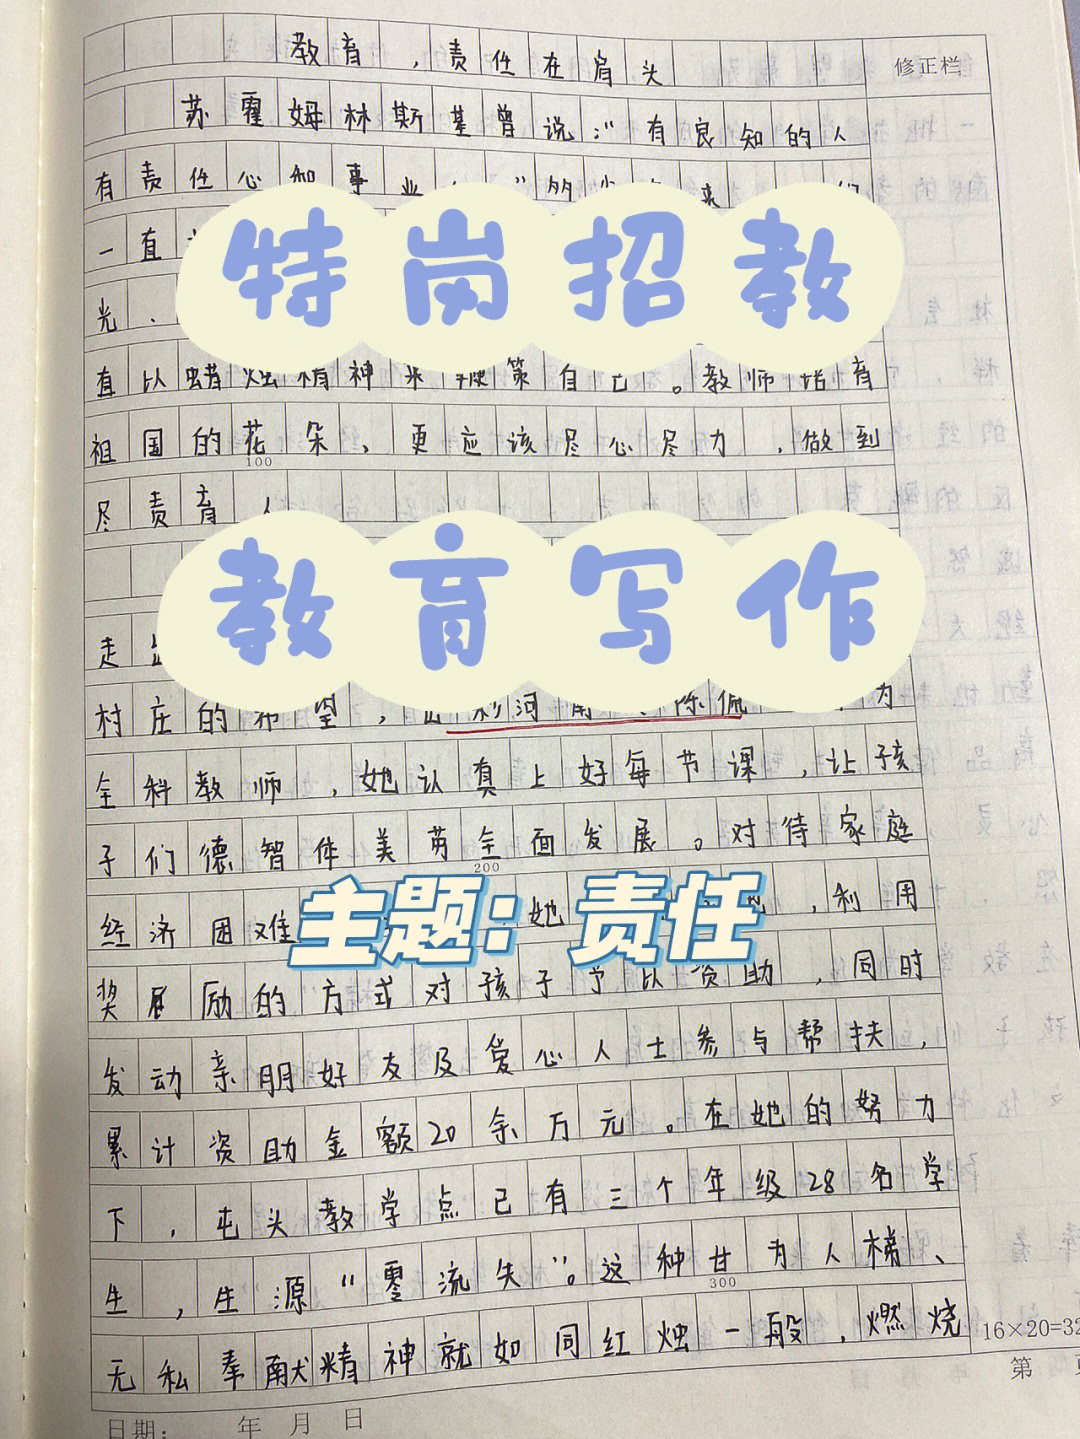 教育，责任在肩头
修正栏
苏霍姆林斯基曾说："有良知的人
有责任心和事业
一直
特岗招教
光、
直以蜡烛精神来鞭策自己。教师培育
祖国的花朵、更应该尽心尽力，做到
100
尽责育人
教育写作
走出
村庄的希望，
全科教师，她认真上好每节课，让孩
子们德智体美劳全面发展。对待家庭
200
经济困难 她 ，利用
主题：责任
奖励的方式对孩子予以资助，同时
发动亲朋好友及爱心人士参与帮扶，
累计资助金额20余万元。在她的努力
下，屯头教学点已有三个年级28名学
生，生源"零流失"。这种甘为人梯、
300
无私奉献精神就如同红烛一般，燃烧
16×20=32
第
日期： 年 月 日